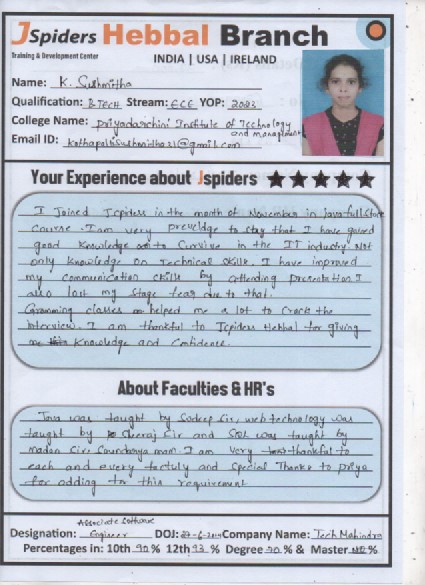 JSpiders Hebbal Branch
Training & Development Center
INDIA | USA | IRELAND
Name: K. Sushmitha
Qualification: B.TECH Stream: ECE YOP: 2023
College Name: Priyadarshini Institute of Technology
and management
Email ID: kothapallisushmitha21@gmail.com
Your Experience about Jspiders ★★★★★
I Joined Jspiders in the month of November in Java fullstore
course. I am very preveldge to stay that I have gained
good Knowledge to Curvive in the IT industry. Not
only knowledge on Technical skills. I have improved
my communication skills by attending presentation I
also lost my stage fear due to that.
Gramming classes helped me a lot to Crack the
interview. I am thankful to Jspiders Hebbal for giving
me Knowledge and Confidence.
About Faculties & HR's
Java was taught by Sudeep Sir, web technology was
taught by Sheeraj Sir and SQL was taught by
madan Sir. Soundarya mam. I am very thankful to
each and every factuly and Special Thanks to priya
for adding to this requirement
Associate Software
Designation: Engineer DOJ: Company Name: Tech Mahindra
Percentages in: 10th 90 % 12th 93 % Degree 70 % & Master %